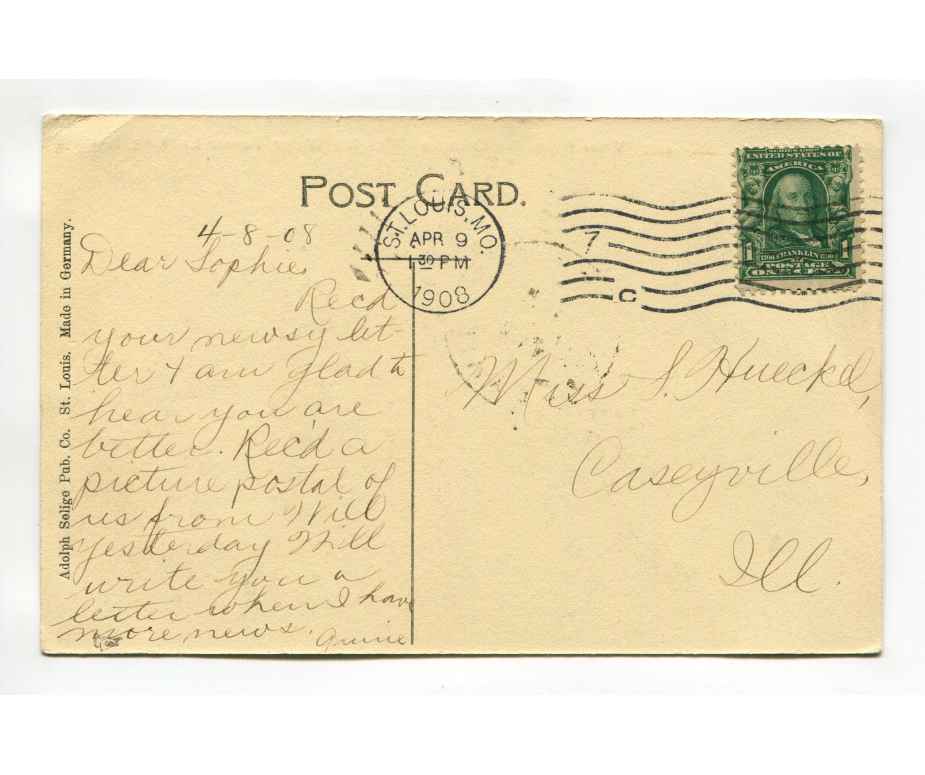 POST CARD.
4-8-08
Dear Sophie,
Rec'd
your newsy let-
ter & am glad to
hear you are
better. Rec'd a
picture postal of
us from Will
yesterday Will
write you a
letter when I have
more news.
Adolph Selige Pub. Co. St. Louis. Made in Germany.
ST. LOUIS, MO.
APR 9
1 30 PM
1908
7
C
UNITED STATES OF
AMERICA
1 FRANKLIN 1
POSTAGE
ONE CENT
Miss S. Hueckel,
Caseyville,
Ill.